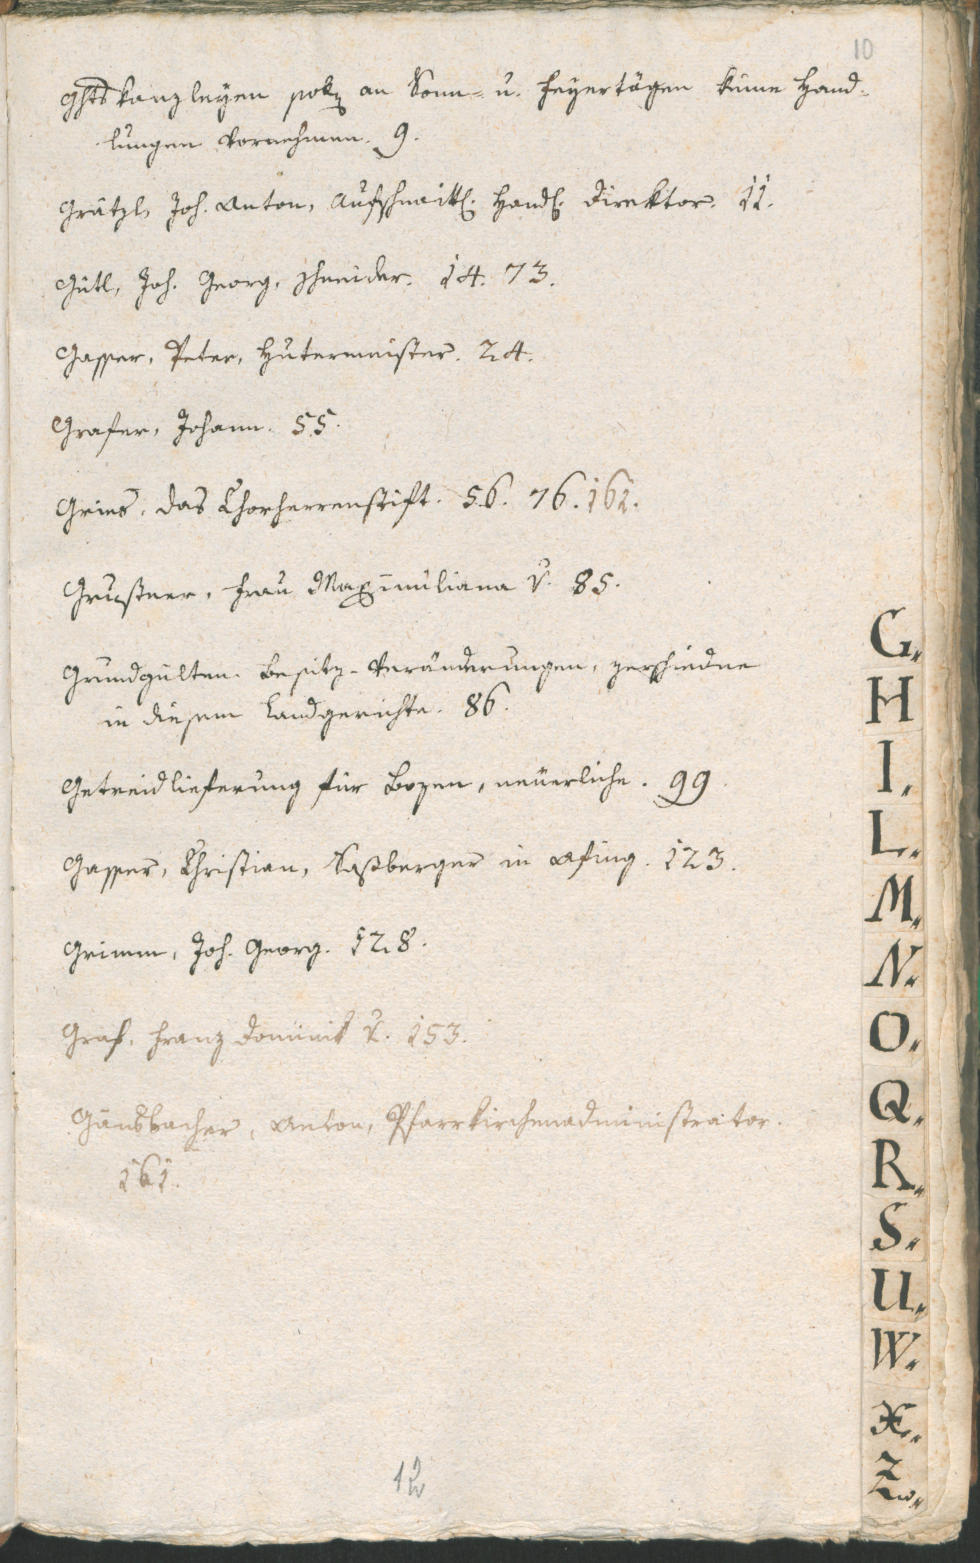 10
Ghts kanzleyen solln an Sonn- u. Feyertägen keine Hand-
lungen vornehmen. 9.
Grätzl, Joh. Anton, Aufschnaitt. Handl. Direktor. 11.
Gütl, Joh. Georg, Schneider. 14. 73.
Gasser, Peter, Hutermeister. 24.
Grafer, Johann. 55.
Gries, das Chorherrenstift. 56. 76. 162.
Frau Maximiliana v. 85.
Grundgülten Besitz-Veränderungen, verschiedne
in diesem Landgerichte. 86.
Getreidlieferung für Bozen, neuerliche. 99.
Gasser, Christian, Saßberger in Afing. 123.
Grimm, Joh. Georg. 128.
Graf, Franz Dominik v. 153.
Gänsbacher, Anton, Pfarrkirchenadministrator.
161.
G.
H
I.
L.
M.
N.
O.
Q.
R.
S.
U.
W.
X.
Z.